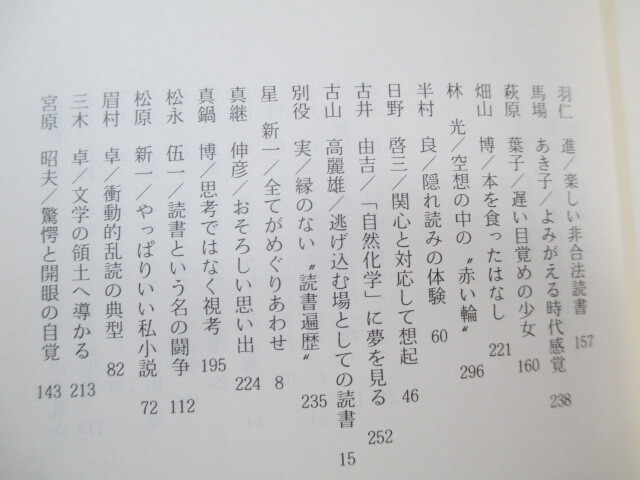 羽仁　進／楽しい非合法読書　157
馬場　あき子／よみがえる時代感覚　238
萩原　葉子／遅い目覚めの少女　160
畑山　博／本を食ったはなし　221
林　光／空想の中の〝赤い輪〟　296
半村　良／隠れ読みの体験　60
日野　啓三／関心と対応して想起　46
古井　由吉／「自然化学」に夢を見る　252
古山　高麗雄／逃げ込む場としての読書　15
別役　実／縁のない〝読書遍歴〟　235
星　新一／全てがめぐりあわせ　8
真継　伸彦／おそろしい思い出　224
真鍋　博／思考ではなく視考　195
松永　伍一／読書という名の闘争　112
松原　新一／やっぱりいい私小説　72
眉村　卓／衝動的乱読の典型　82
三木　卓／文学の領土へ導かる　213
宮原　昭夫／驚愕と開眼の自覚　143